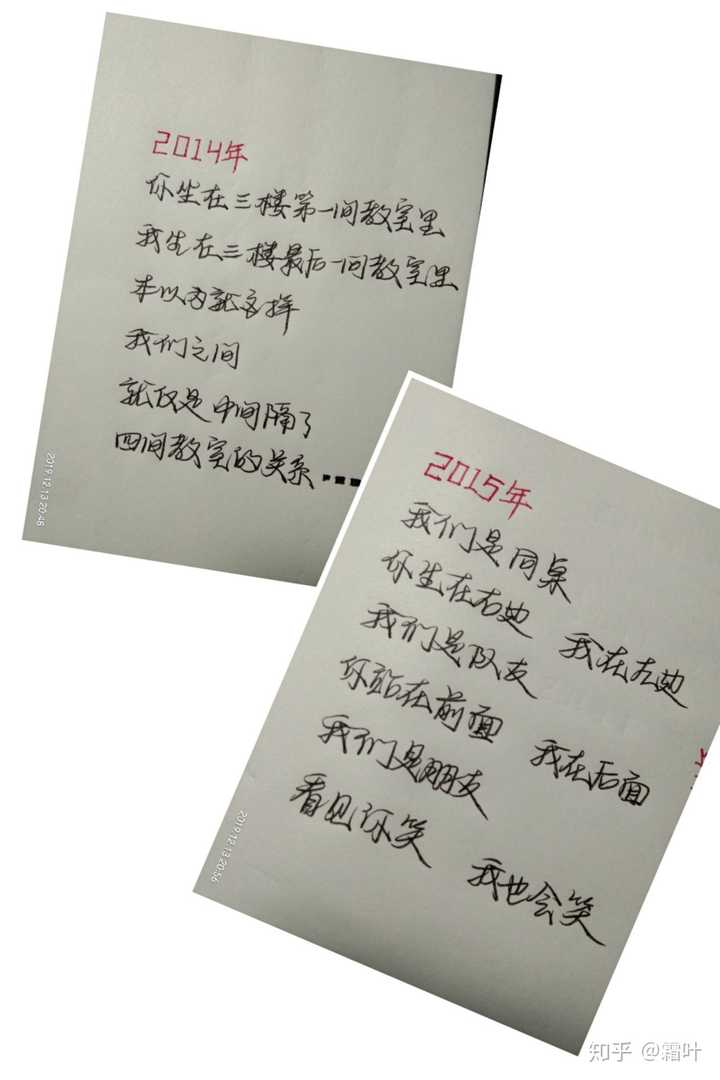 2014年
你坐在三楼第一间教室里
我坐在三楼最后一间教室里
本以为就这样
我们之间
就仅是中间隔了
四间教室的关系……
2019.12.13 20:48
2015年
我们是同桌
你坐在右边 我在左边
我们是队友
你站在前面 我在后面
我们是朋友
看见你笑 我也会笑
2019.12.13 20:56
知乎 @霜叶